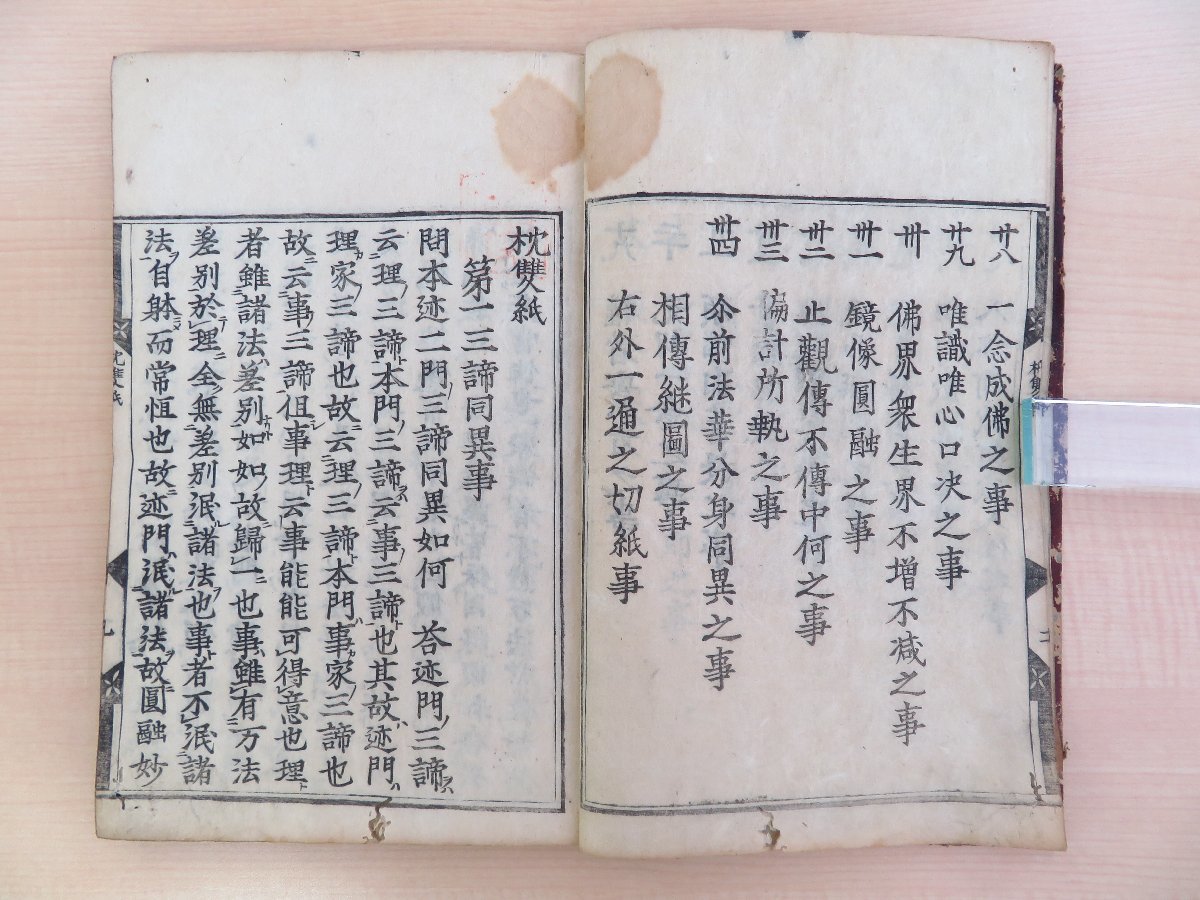 廿八 一念成佛之事
廿九 唯識唯心口决之事
卅 佛界衆生界不增不减之事
卅一 鏡像圓融之事
卅二 止觀傳不傳中何之事
卅三 徧計所執之事
卅四 尒前法華分身同異之事
相傳継圖之事
右外一通之切紙事
枕雙紙
第一三諦同異事
問本迹二門ノ三諦同異如何 荅迹門ノ三諦ヲハ
云理ノ三諦ト本門ノ三諦ヲハ云事ノ三諦ト也其故ハ迹門ハ
理家ノ三諦也故ニ云理ノ三諦ト本門ハ事家ノ三諦也
故ニ云事ノ三諦ト但事理ト云事能能可得意也理ト
者雖諸法ハ差別ナリト如如ノ故ニ歸一ニ也事ト雖有万法
差別於理ニ全ク無差別泯諸法ヲ也事ト者不泯諸
法ヲ自躰而常恒也故ニ迹門ハ泯諸法ヲ故ニ圓融妙
枕雙紙